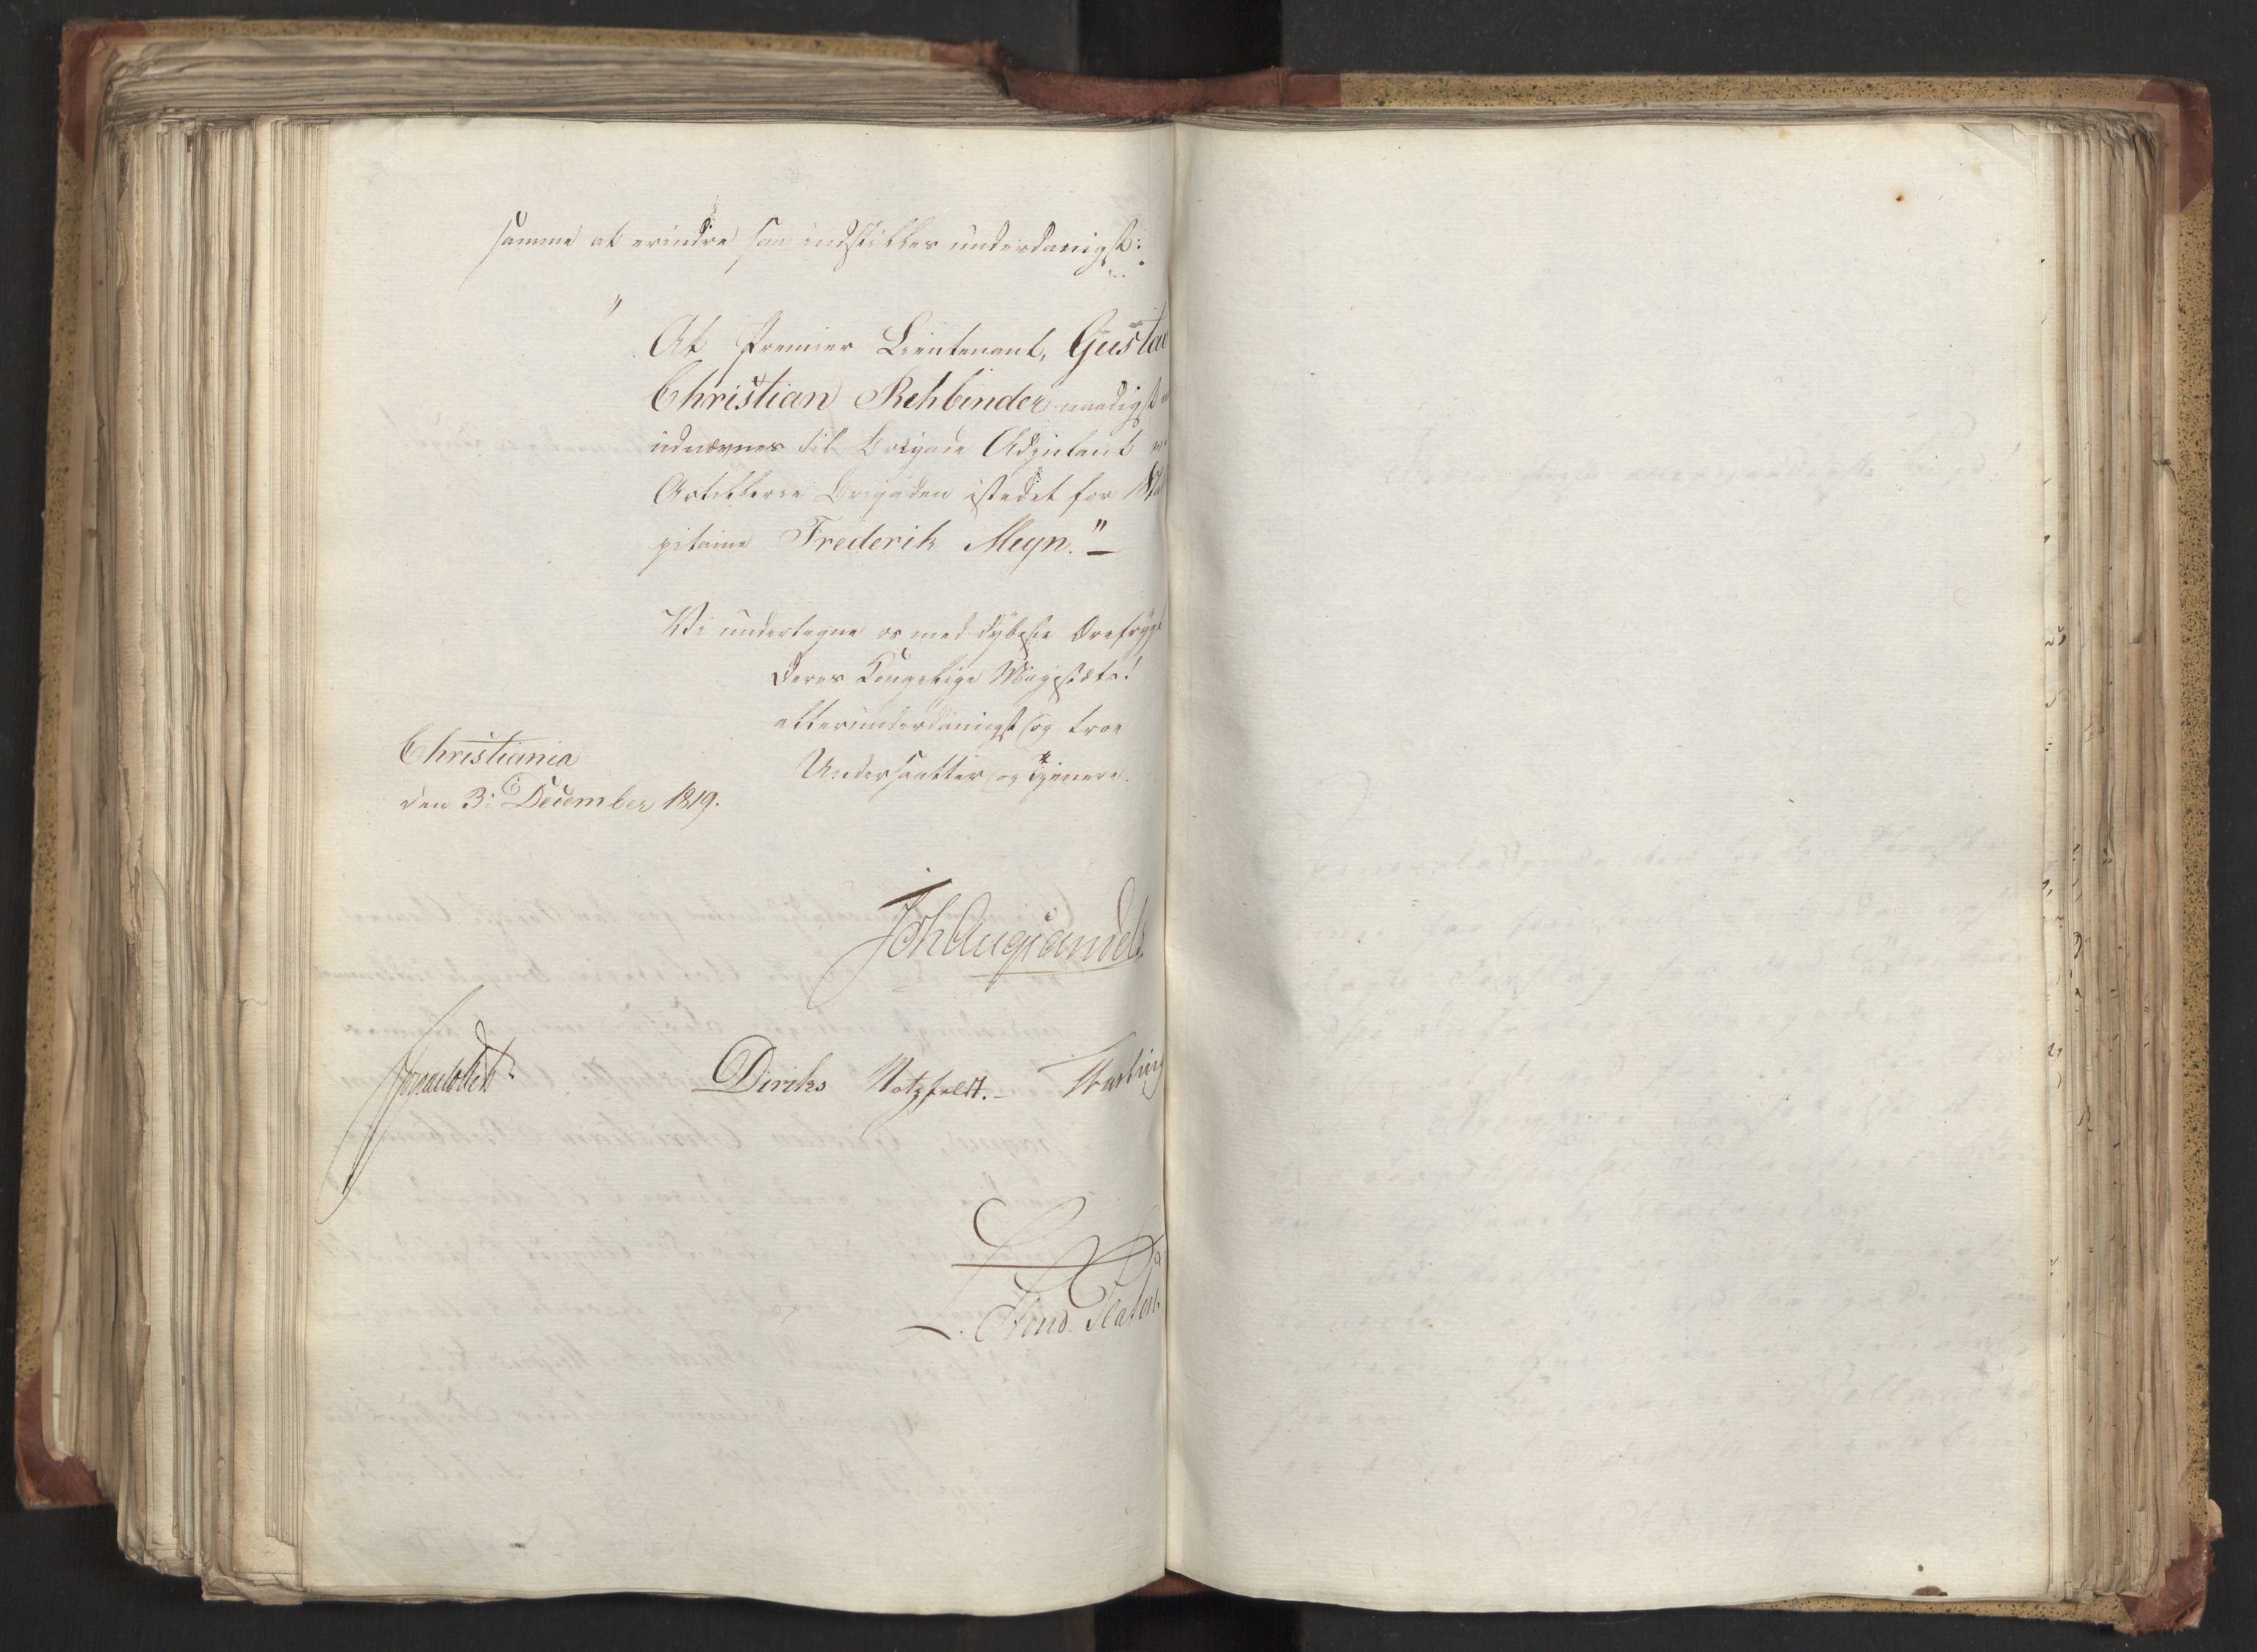 samme at erindre saa indstilles underdanigst:
" At Premier Lieutenant, Gustav
Christian Rehbinder naadigst
udnævnes til Brigade Adjutant v
Artillerie Brigaden istedet for Ka
pitaine Frederik Meyn." –
Vi undertegne os med dybeste Ærefrygt
Deres Kongelige Majestæts!
allerunderdanigst og troe
Undersaatter og Tjenere.
Christiania
den 3: December 1819.
Joh Aug Sandels
Sommerhielm
Diriks Motzfeldt. – Fasting